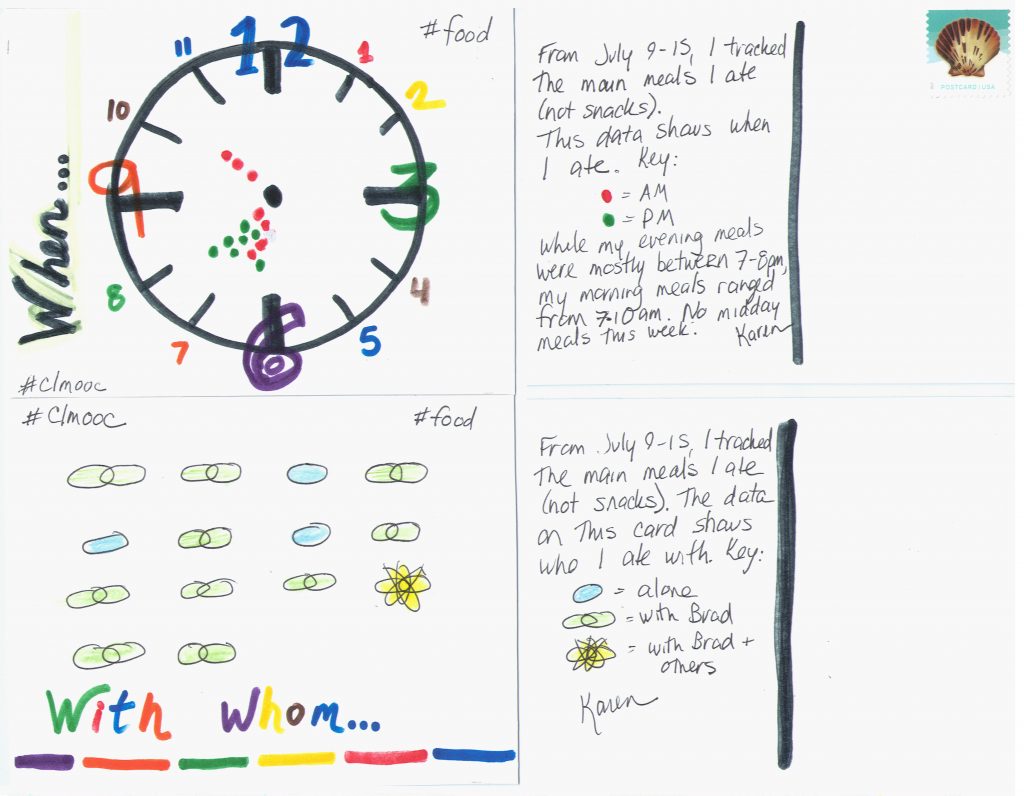 #food
12
1
2
3
4
5
6
7
8
9
10
11
When...
#clmooc
From July 9-15, I tracked
the main meals I ate
(not snacks).
This data shows when
I ate. Key:
= AM
= PM
While my evening meals
were mostly between 7-8pm,
my morning meals ranged
from 7-10am. No midday
meals this week.
Karen
POSTCARD/USA
#clmooc
#food
With Whom...
From July 9-15, I tracked
the main meals I ate
(not snacks). The data
on this card shows
who I ate with. Key:
= alone
= with Brad
= with Brad +
others
Karen